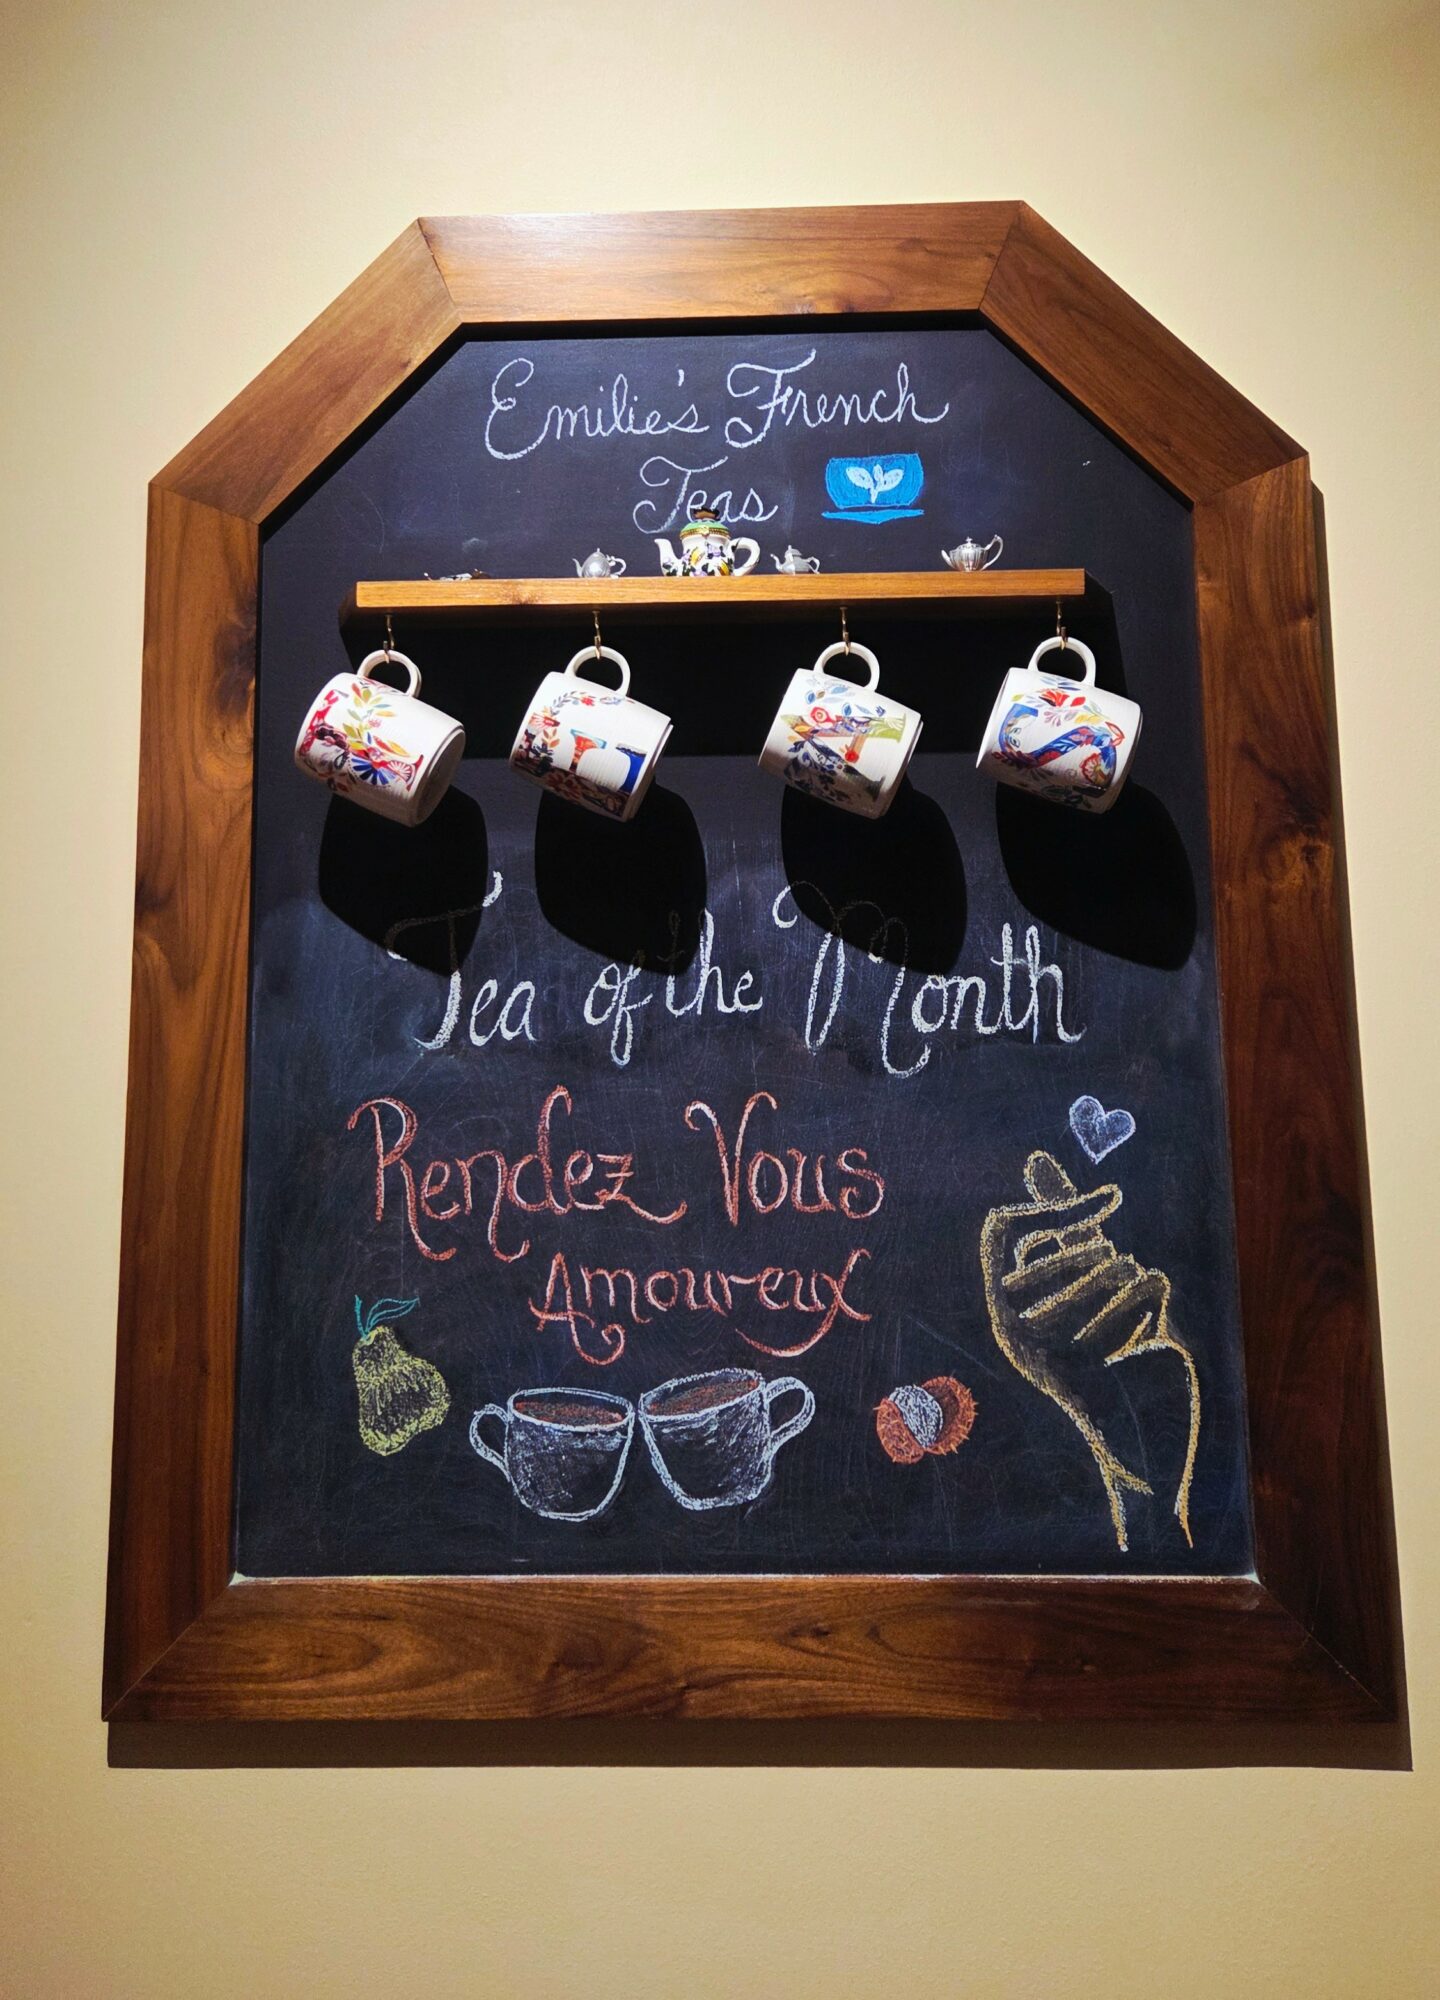 Emilie's French
Teas
T E A S
Tea of the Month
Rendez Vous
Amoureux